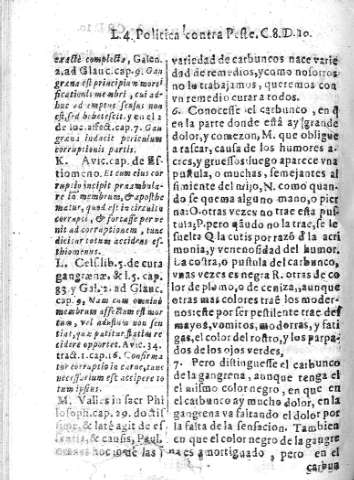 L.4. Politica contra Peste. C.8.D.10.
exactè complectæ, Galen.
2. ad Glauc. cap. 9. Gan
græna est principium mor
ificationis membri, cui ad-
huc ad emptus sensus non
est, sed hebetescit. y en el 2
de loc. affect. cap. 7. Gan
græna inducit periculum
corruptionis partis.
K. Avic. cap. de Es-
tiomeno. Et cum eius cor
ruptio incipit præambula-
re in membrum, & aposthe
matur, quod est in circuitu
corrupti, & forcasse perve
nit ad corruptionem, tunc
dicitur totum accidens es
thiomenus.
L. Cels. lib. 5. de cura
gangrænæ, & l. 5. cap.
83. y Gal. 2. ad Glauc.
cap. 9. Nam cum omninò
membrum affectum est mor
tuum, vel adustum non sen
tiat, quæ patitur statim re
cidere oportet. Avic. 34.
tract. 1. cap. 16. Confirma
tur corruptio in carne, tunc
necessarium est accipere to
tum ipsius.
M. Vales. in sacr. Phi
losoph. cap. 19. doctissi
mè, & latè agit de es
& causis, Paul.
variedad de carbuncos nace varie
dad de remedios, y como nosotros
no lo trabajamos, queremos con
vn remedio curar à todos.
6. Conocese el carbunco, en q̃
en la parte donde està ay grande
dolor, y comezon, M. que obligue
à rascar, causa de los humores a-
cres, y gruessos: luego aparece vna
pustula, o muchas, semejantes al
simiente del mijo, N. como quan-
do se quema alguno mano, o pier
na: O. otras vezes no trae esta pus
tula; P. pero quãdo no la trae, se le
suelta Q. la cutis por razõ d la acri
monia, y venenosidad del humor.
La costra, o pustula del carbunco,
vnas vezes es negra R. otras de co
lor de plomo, o de ceniza, aunque
otras mas colores traè los moder-
nos: este por ser pestilente trae des
mayos, vomitos, modorras, y fati-
gas, el color del rostro, y los parpa-
dos de los ojos verdes.
7. Pero distinguesse el carbunco
de la gangrena, aunque tenga el
el mismo color negro, en que en
el carbunco ay mucho dolor, en la
gangrena va faltando el dolor por
la falta de la sensacion. Tambien
en que el color negro de la gangre
na es amortiguado, pero en el
carbun